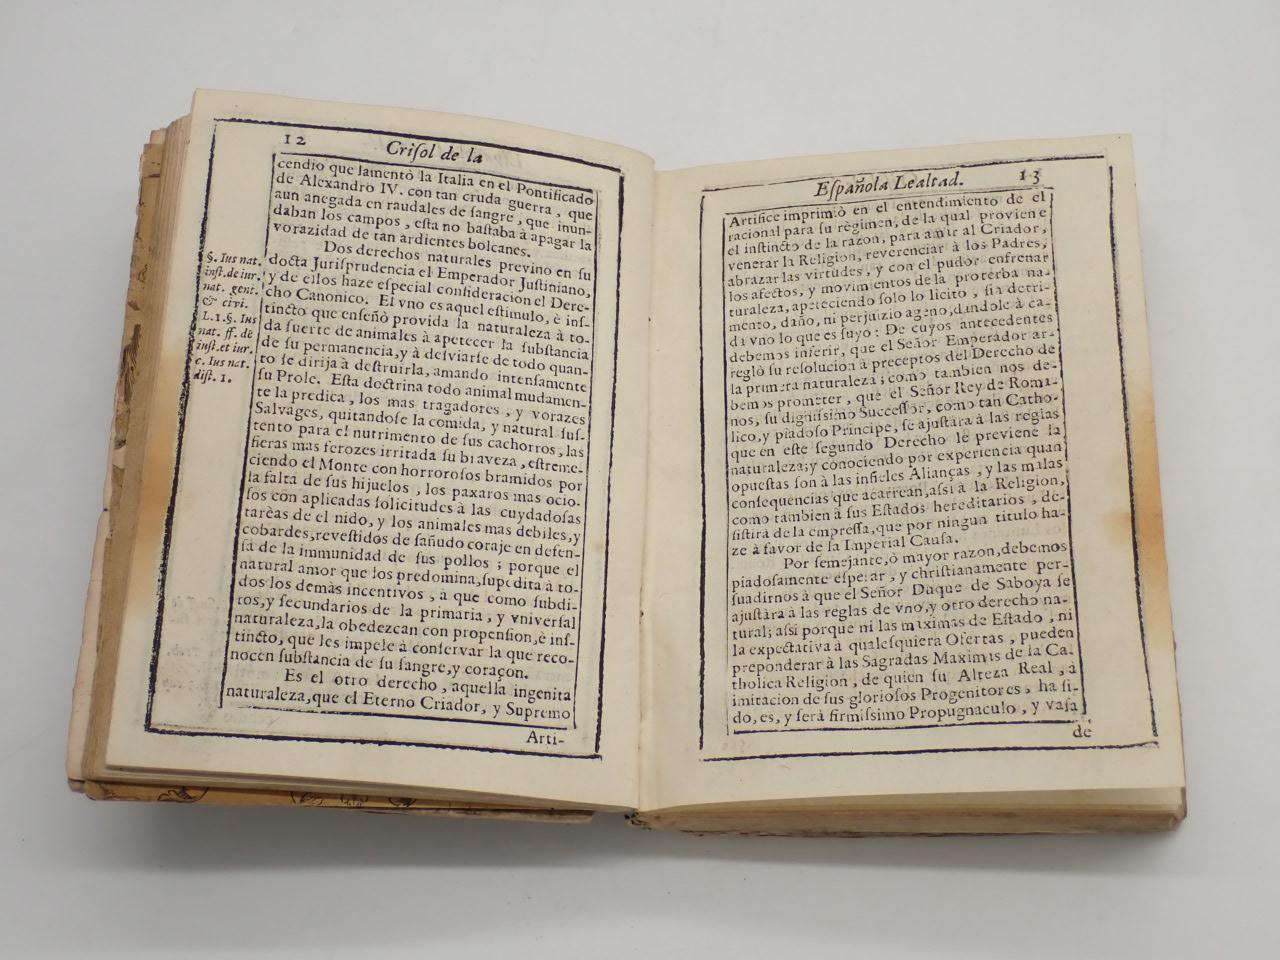 12
Criſol de la
cendio que lamentò la Italia en el Pontificado
de Alexandro IV. con tan cruda guerra, que
aun anegada en raudales de ſangre, que inun-
daban los campos, eſta no baſtaba à apagar la
vorazidad de tan ardientes bolcanes.
Dos derechos naturales previno en ſu
docta Juriſprudencia el Emperador Juſtiniano,
y de ellos haze eſpecial conſideracion el Dere-
cho Canonico. El vno es aquel eſtimulo, è inſ-
tincto que enſeñò provida la naturaleza à to-
da ſuerte de animales à apetecer la ſubſtancia
de ſu permanencia, y à deſviarſe de todo quan-
to ſe dirija à deſtruirla, amando intenſamente
ſu Prole. Eſta doctrina todo animal mudamen-
te la predica, los mas tragadores, y vorazes
Salvages, quitandoſe la comida, y natural ſuſ-
tento para el nutrimento de ſus cachorros, las
fieras mas ferozes irritada ſu biaveza, eſtreme-
ciendo el Monte con horroroſos bramidos por
la falta de ſus hijuelos, los paxaros mas ocio-
ſos con aplicadas ſolicitudes à las cuydadoſas
tarèas de el nido, y los animales mas debiles, y
cobardes, reveſtidos de ſañudo coraje en defen-
ſa de la immunidad de ſus pollos; porque el
natural amor que los predomina, ſupedita à to-
dos los demàs incentivos, à que como ſubdi-
tos, y ſecundarios de la primaria, y vniverſal
naturaleza, la obedezcan con propenſion, è inſ-
tincto, que les impele à conſervar la que reco-
nocen ſubſtancia de ſu ſangre, y coraçon.
Es el otro derecho, aquella ingenita
naturaleza, que el Eterno Criador, y Supremo
Arti-
§. Ius nat.
inſt. de iur.
nat. gent.
& civi.
L. 1. §. Ius
nat. ff. de
inſt. et iur.
c. Ius nat.
diſt. 1.
Eſpañola Lealtad.
13
Artifice imprimiò en el entendimiento de el
racional para ſu règimen, de la qual proviene
el inſtincto de la razon, para amar al Criador,
venerar la Religion, reverenciar à los Padres,
abrazar las virtudes, y con el pudor enfrenar
los afectos, y movimientos de la proterba na-
turaleza, apeteciendo ſolo lo licito, ſin detri-
mento, daño, ni perjuizio ageno, dandole à ca-
da vno lo que es ſuyo: De cuyos antecedentes
debemos inferir, que el Señor Emperador ar-
reglò ſu reſolucion à preceptos del Derecho de
la primera naturaleza; como tambien nos de-
bemos prometer, que el Señor Rey de Roma-
nos, ſu digniſsimo Succeſſor, como tan Catho-
lico, y piadoſo Principe, ſe ajuſtarà à las reglas
que en eſte ſegundo Derecho le previene la
naturaleza; y conociendo por experiencia quan
opueſtas ſon à las infieles Alianças, y las malas
conſequencias que acarrean, aſsi à la Religion,
como tambien à ſus Eſtados hereditarios, de-
ſiſtirà de la empreſſa, que por ningun titulo ha-
ze à favor de la Imperial Cauſa.
Por ſemejante, ò mayor razon, debemos
piadoſamente eſperar, y chriſtianamente per-
ſuadirnos à que el Señor Duque de Saboya ſe
ajuſtàra à las reglas de vno, y otro derecho na-
tural; aſsi porque ni las maximas de Eſtado, ni
la expectativa à qualeſquiera Ofertas, pueden
preponderar à las Sagradas Maximas de la Ca-
tholica Religion, de quien ſu Alteza Real, à
imitacion de ſus glorioſos Progenitores, ha ſi-
do, es, y ſerà firmiſsimo Propugnaculo, y vaſa
de